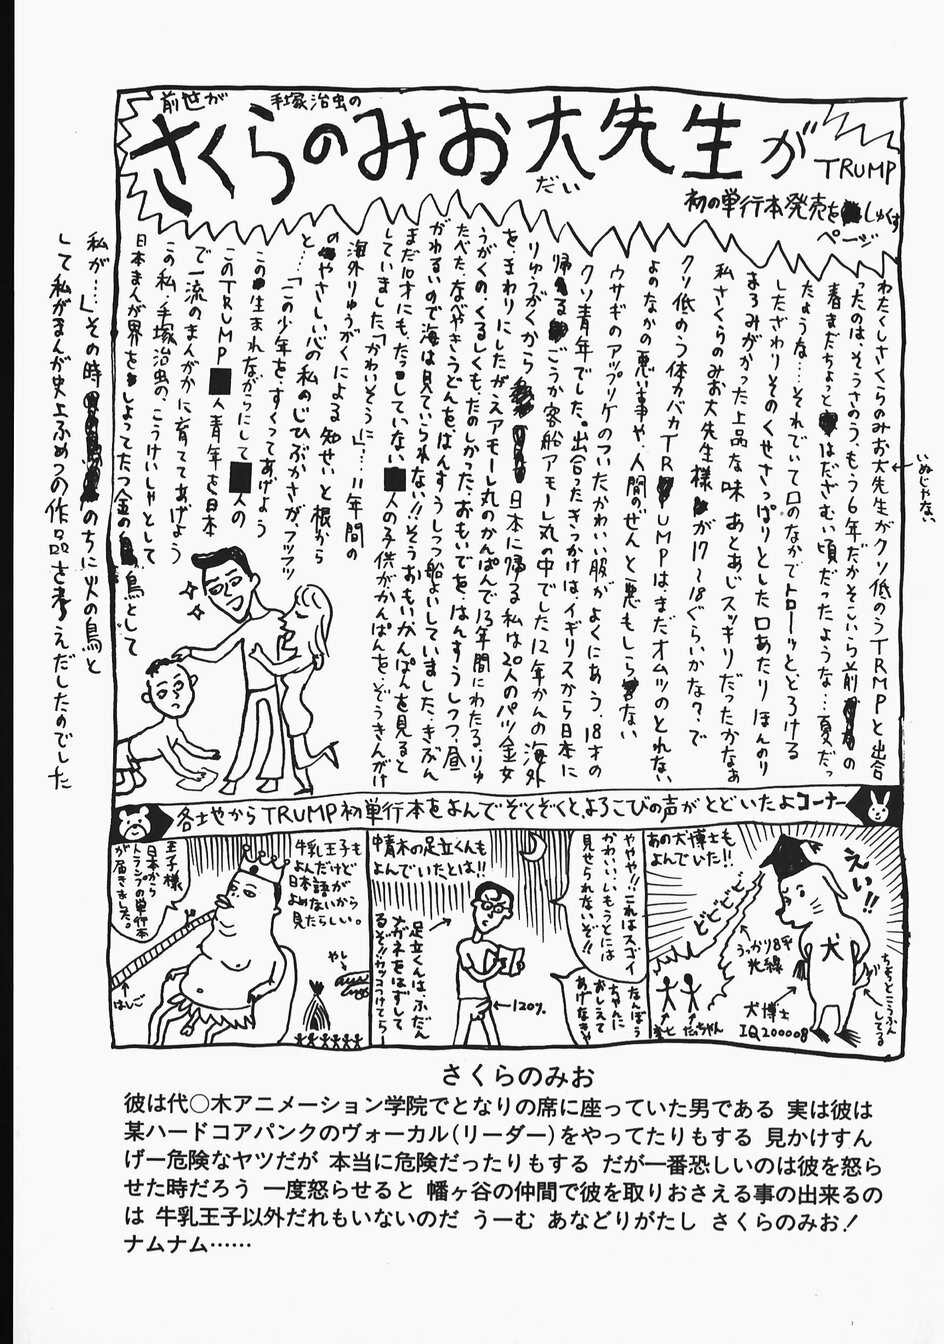 前世が 手塚治虫の
さくらのみお大先生が
だい
TRUMP
初の単行本発売をしゅくす
ページ
わたくしさくらのみお大先生がクソ低のうTRMPと出合
いぬじゃない
ったのは、そうさのう、もう6年だかそこいら前の
春まだちょっとはださむい頃だったような…夏だっ
たような…それでいて口のなかでトローッととろける
したざわりそのくせさっぱりとした口あたり ほんのり
まろみがかった上品な味 あとあじスッキリだったかなぁ
私さくらのみお大先生様が17〜18ぐらいかな?で
クソ低のう体力バカTRUMPは、まだオムツのとれない
よのなかの悪い事や、人間のぜんと悪もしらない
ウサギのアップリケのついたかわいい服がよくにあう、18才の
クソ青年でした。出合ったきっかけは、イギリスから日本に
帰るごうか客船アモーレ丸の中でした12年かんの海外
りゅうがくから日本に帰る私は20人のパツ金女
を、まわりにしたがえアモーレ丸のかんぱんで13年間にわたる、りゅ
うがくの、くるしくも、たのしかった、おもいでを、はんすうしつつ、昼
たべた、なべやきうどんを、はんすうしつつ船よいしていました、キぶん
がわるいので海は見ていられない!!そうおもいかんぱんを見ると
まだ10才にもたっしていない■人の子供がかんぱんを、ぞうきんがけ
していました「かわいそうに」…11年間の
海外りゅうがくによる知せいと根から
のやさしい心の私のじひぶかさが、フツフツ
と…「この少年を、すくってあげよう
この生まれながらにして■人の
このTRUMP■人青年を日本
で一流のまんがかに育ててあげよう
この私、手塚治虫の、こうけいしゃとして
日本まんが界をしょってたつ金の鳥として
私が…」その時のちに火の鳥と
して私がまんが史上ふめつの作品を考えだしたのでした
各土やからTRUMP初単行本をよんでぞくぞくと、よろこびの声がとどいたよコーナー
あの犬博士も
よんでいた!!
えい!!
ビビビビ
うっかり8平
光線
犬
犬博士
IQ200008
ちょっとこうふん
してる
ややや!!これはスゴイ
かわいい、いもうとには
見せられないぞ!!
なんぼう
ちゃんに
おしえて
あげなきゃ
情木の足立くんも
よんでいたとは!!
120%
足立くんは、ふだん
メガネをはずして
るぞ!!カッコつけてら!
牛乳王子も
よんだけど
日本語が
よめないから
見たらしい。
王子様
日本から
トランプの単行本
が届きました。
はしご
やし
さくらのみお
彼は代○木アニメーション学院でとなりの席に座っていた男である 実は彼は
某ハードコアパンクのヴォーカル(リーダー)をやってたりもする 見かけすん
げー危険なヤツだが 本当に危険だったりもする だが一番恐しいのは彼を怒ら
せた時だろう 一度怒らせると 幡ヶ谷の仲間で彼を取りおさえる事の出来るの
は 牛乳王子以外だれもいないのだ うーむ あなどりがたし さくらのみお!
ナムナム……